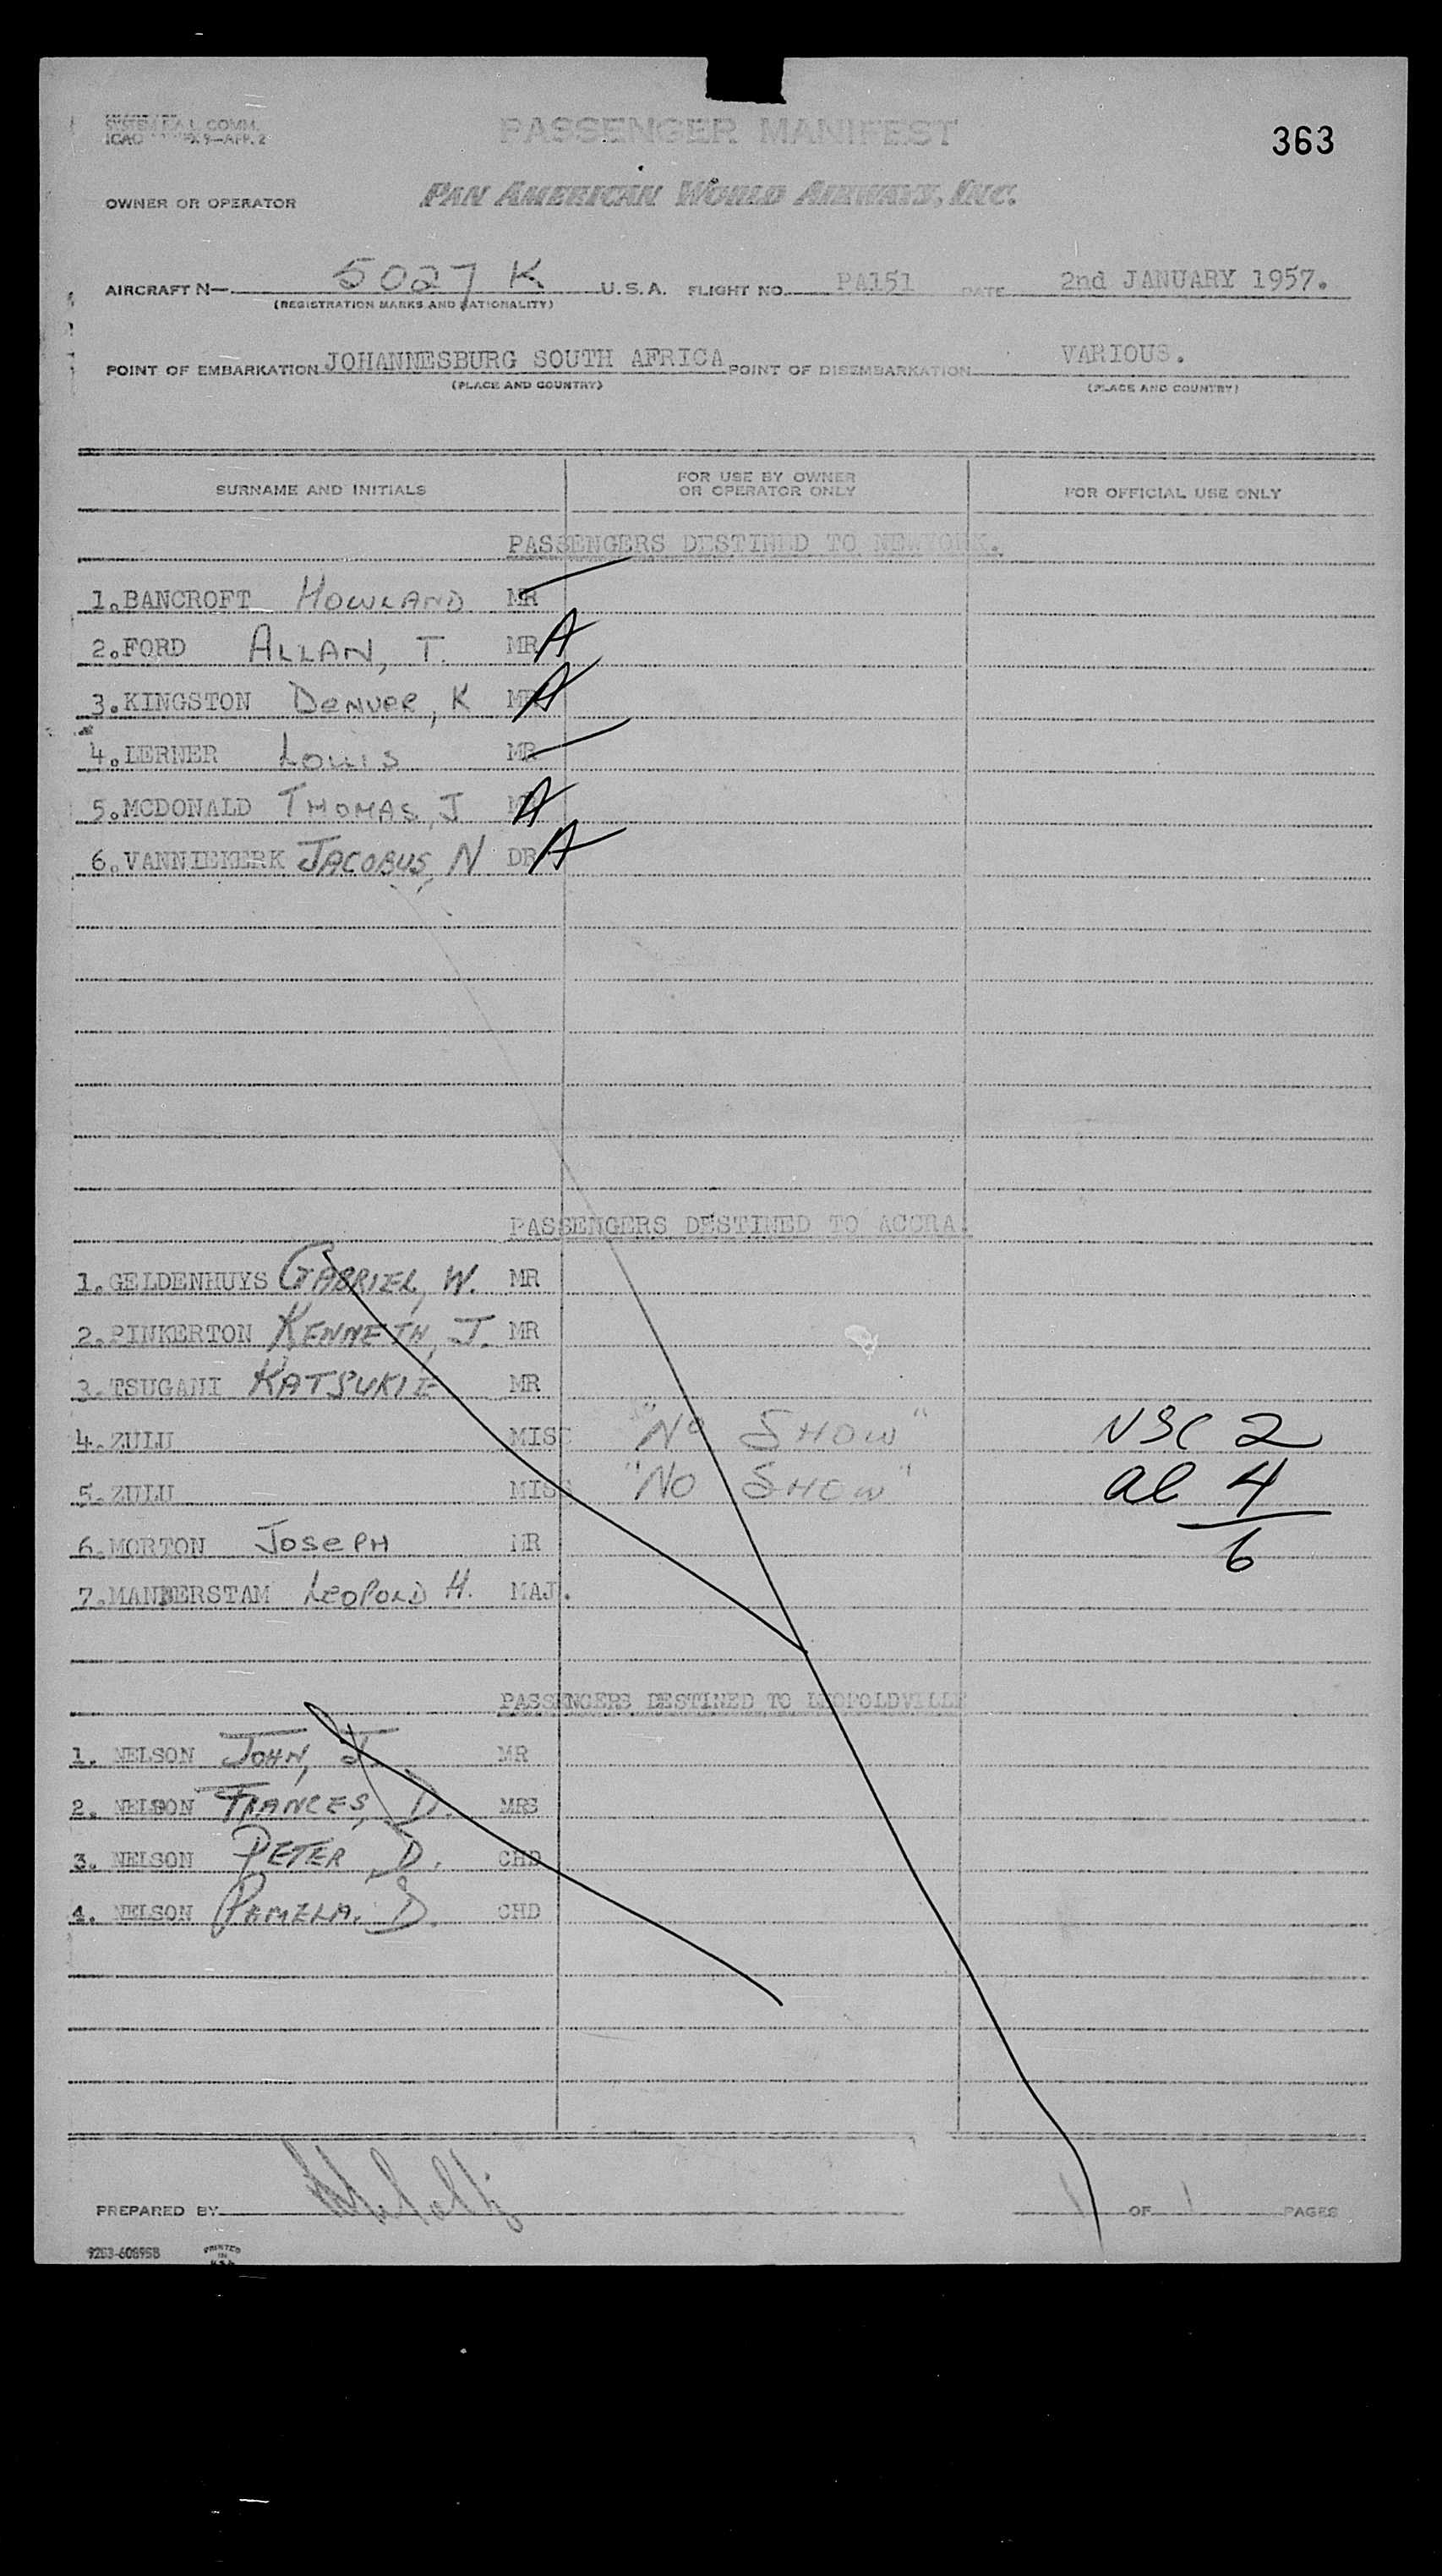 SYSTEM F.A.L. COMM.
ICAO 9—APP. 2
PASSENGER MANIFEST
363
OWNER OR OPERATOR PAN AMERICAN WORLD AIRWAYS, INC.
AIRCRAFT N— 5027 K U.S.A. FLIGHT NO. PA151 DATE 2nd JANUARY 1957.
(REGISTRATION MARKS AND NATIONALITY)
POINT OF EMBARKATION JOHANNESBURG SOUTH AFRICA POINT OF DISEMBARKATION VARIOUS.
(PLACE AND COUNTRY) (PLACE AND COUNTRY)
SURNAME AND INITIALS FOR USE BY OWNER OR OPERATOR ONLY FOR OFFICIAL USE ONLY
PASSENGERS DESTINED TO NEWYORK.
1. BANCROFT HOWLAND MR
2. FORD ALLAN, T. MR A
3. KINGSTON DENVER, K MR A
4. LERNER LOUIS MR
5. MCDONALD THOMAS, J MR A
6. VANNIEKERK JACOBUS, N DR A
PASSENGERS DESTINED TO ACCRA.
1. GELDENHUYS GABRIEL, W. MR
2. PINKERTON KENNETH, J. MR
3. TSUGAMI KATSUKIE MR
4. ZULU MISC "NO SHOW" NSC 2
5. ZULU MISC "NO SHOW" al 4
6. MORTON JOSEPH MR 6
7. MANDERSTAM LEOPOLD H. MAJ.
PASSENGERS DESTINED TO LEOPOLDVILLE
1. NELSON JOHN, J. MR
2. NELSON FRANCES, D. MRS
3. NELSON PETER, D. CHD
4. NELSON PAMELA. D. CHD
PREPARED BY 1 OF 1 PAGES
9253-608958 PRINTED IN